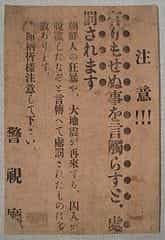 注意!!!
有りもせぬ事を言觸らすと、處
罰されます
朝鮮人の狂暴や、大地震が再來する、囚人が
脱監したなぞと言傳へて處罰されたものは多
數あります。
時節柄皆樣注意して下さい。
警視廳